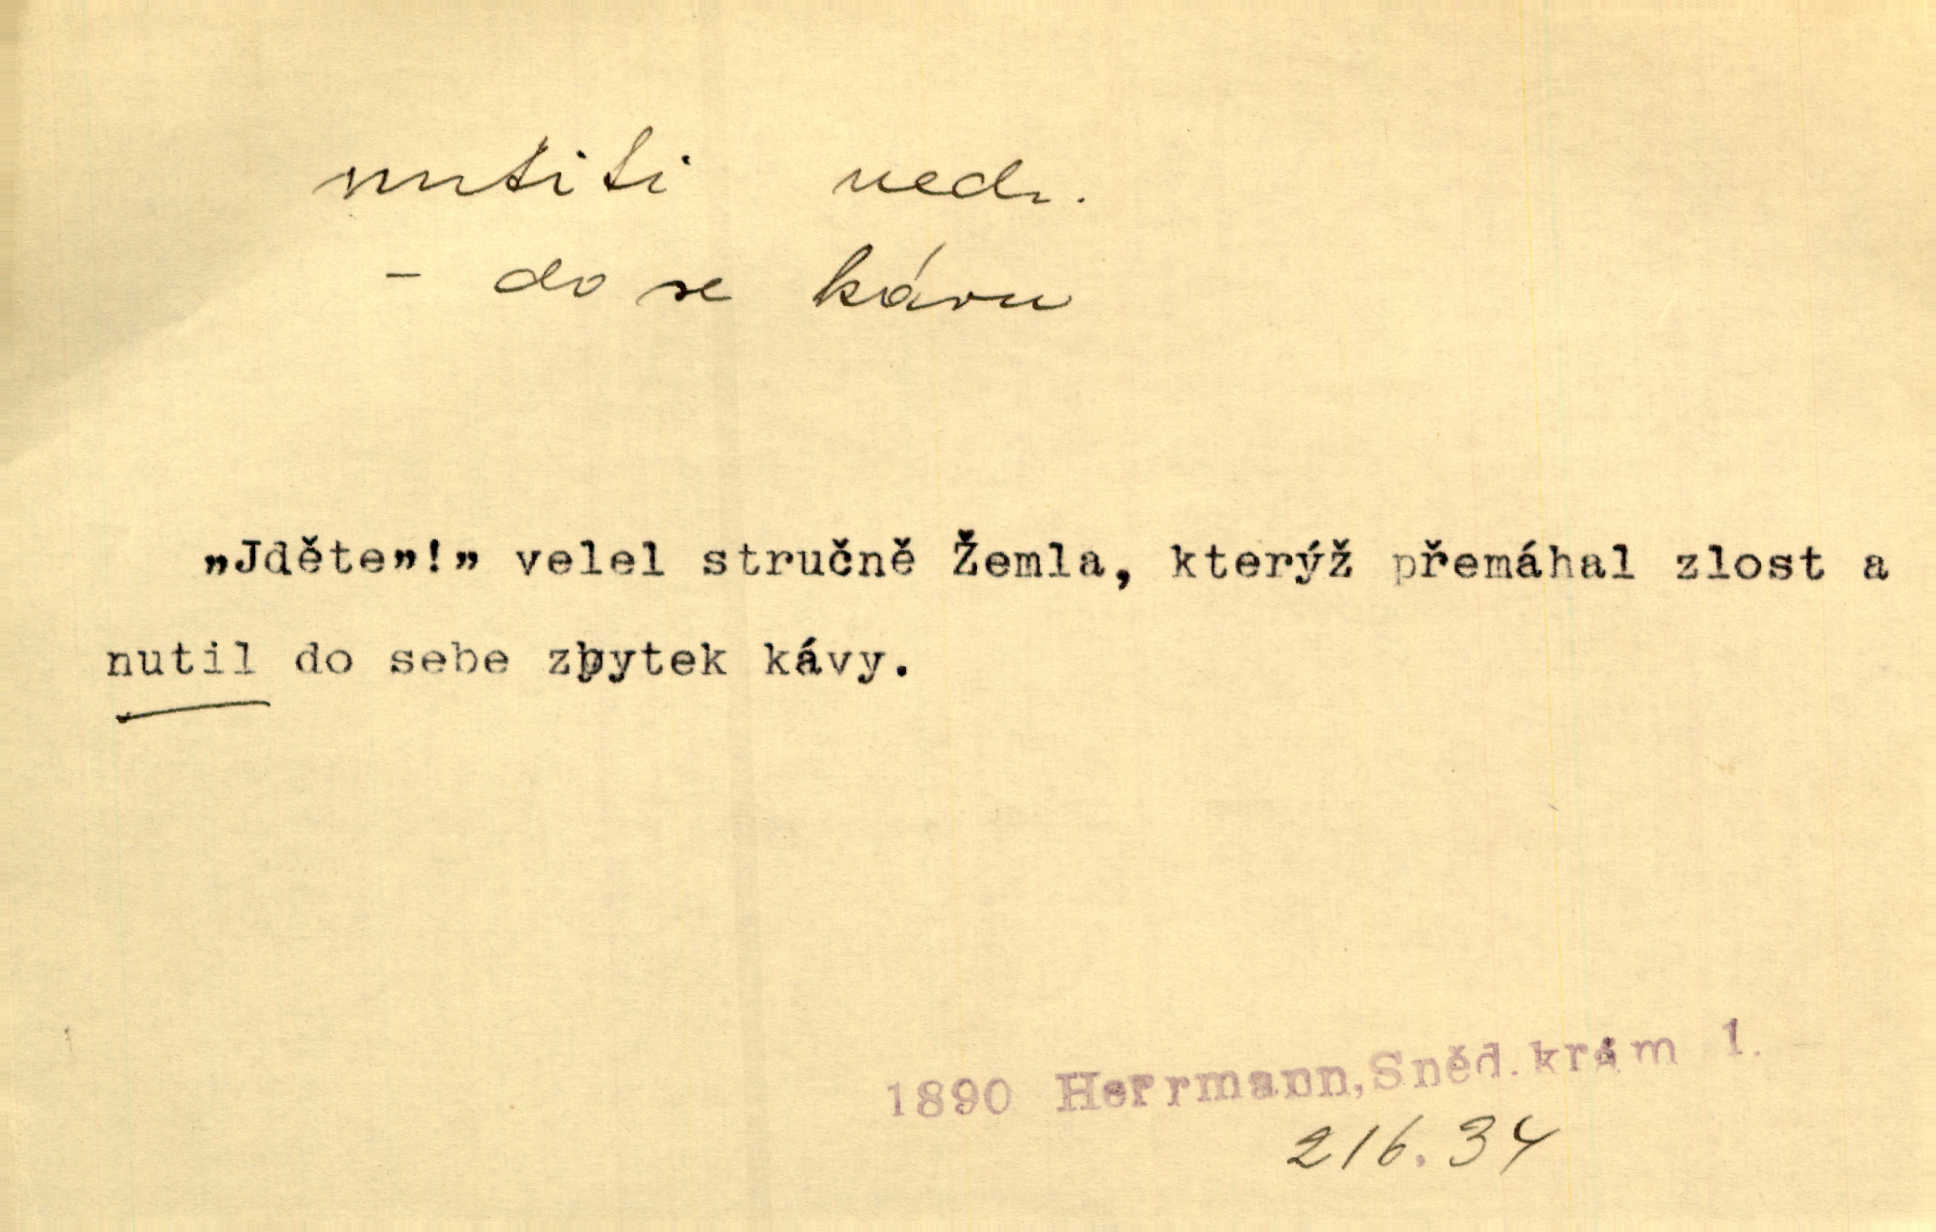 nutiti ned.
- do se kávu
„Jděte”!” velel stručně Žemla, kterýž přemáhal zlost a
nutil do sebe zbytek kávy.
1890 Herrmann, Sněd. krám 1.
216.34